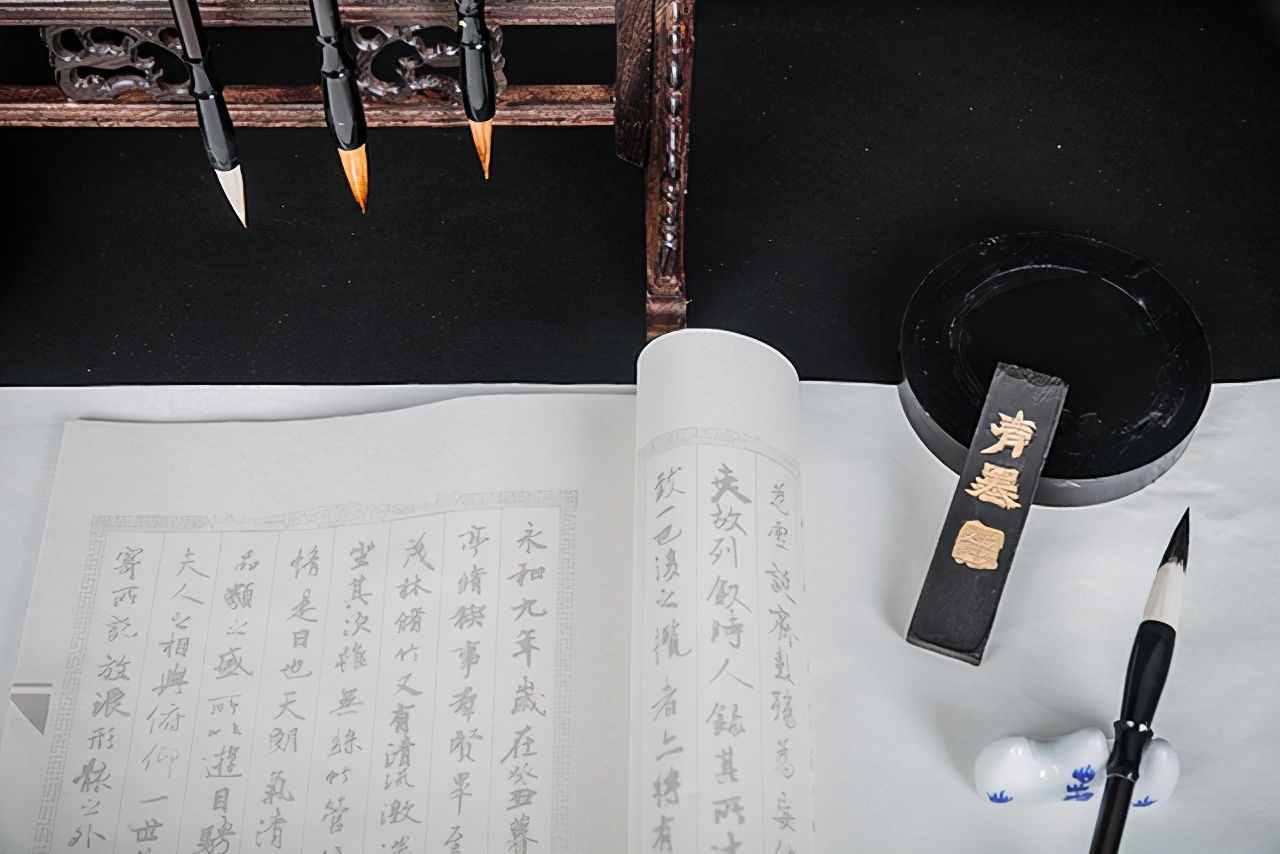 為虛誕齊彭殤為妄
夫故列敘時人錄其所述
致一也後之攬者亦將有
永和九年歲在癸丑暮
亭脩稧事羣賢畢至
茂林脩竹又有清流激
坐其次雖無絲竹管
情是日也天朗氣清
品類之盛所以遊目騁
夫人之相與俯仰一世
寄所託放浪形骸之外
青墨